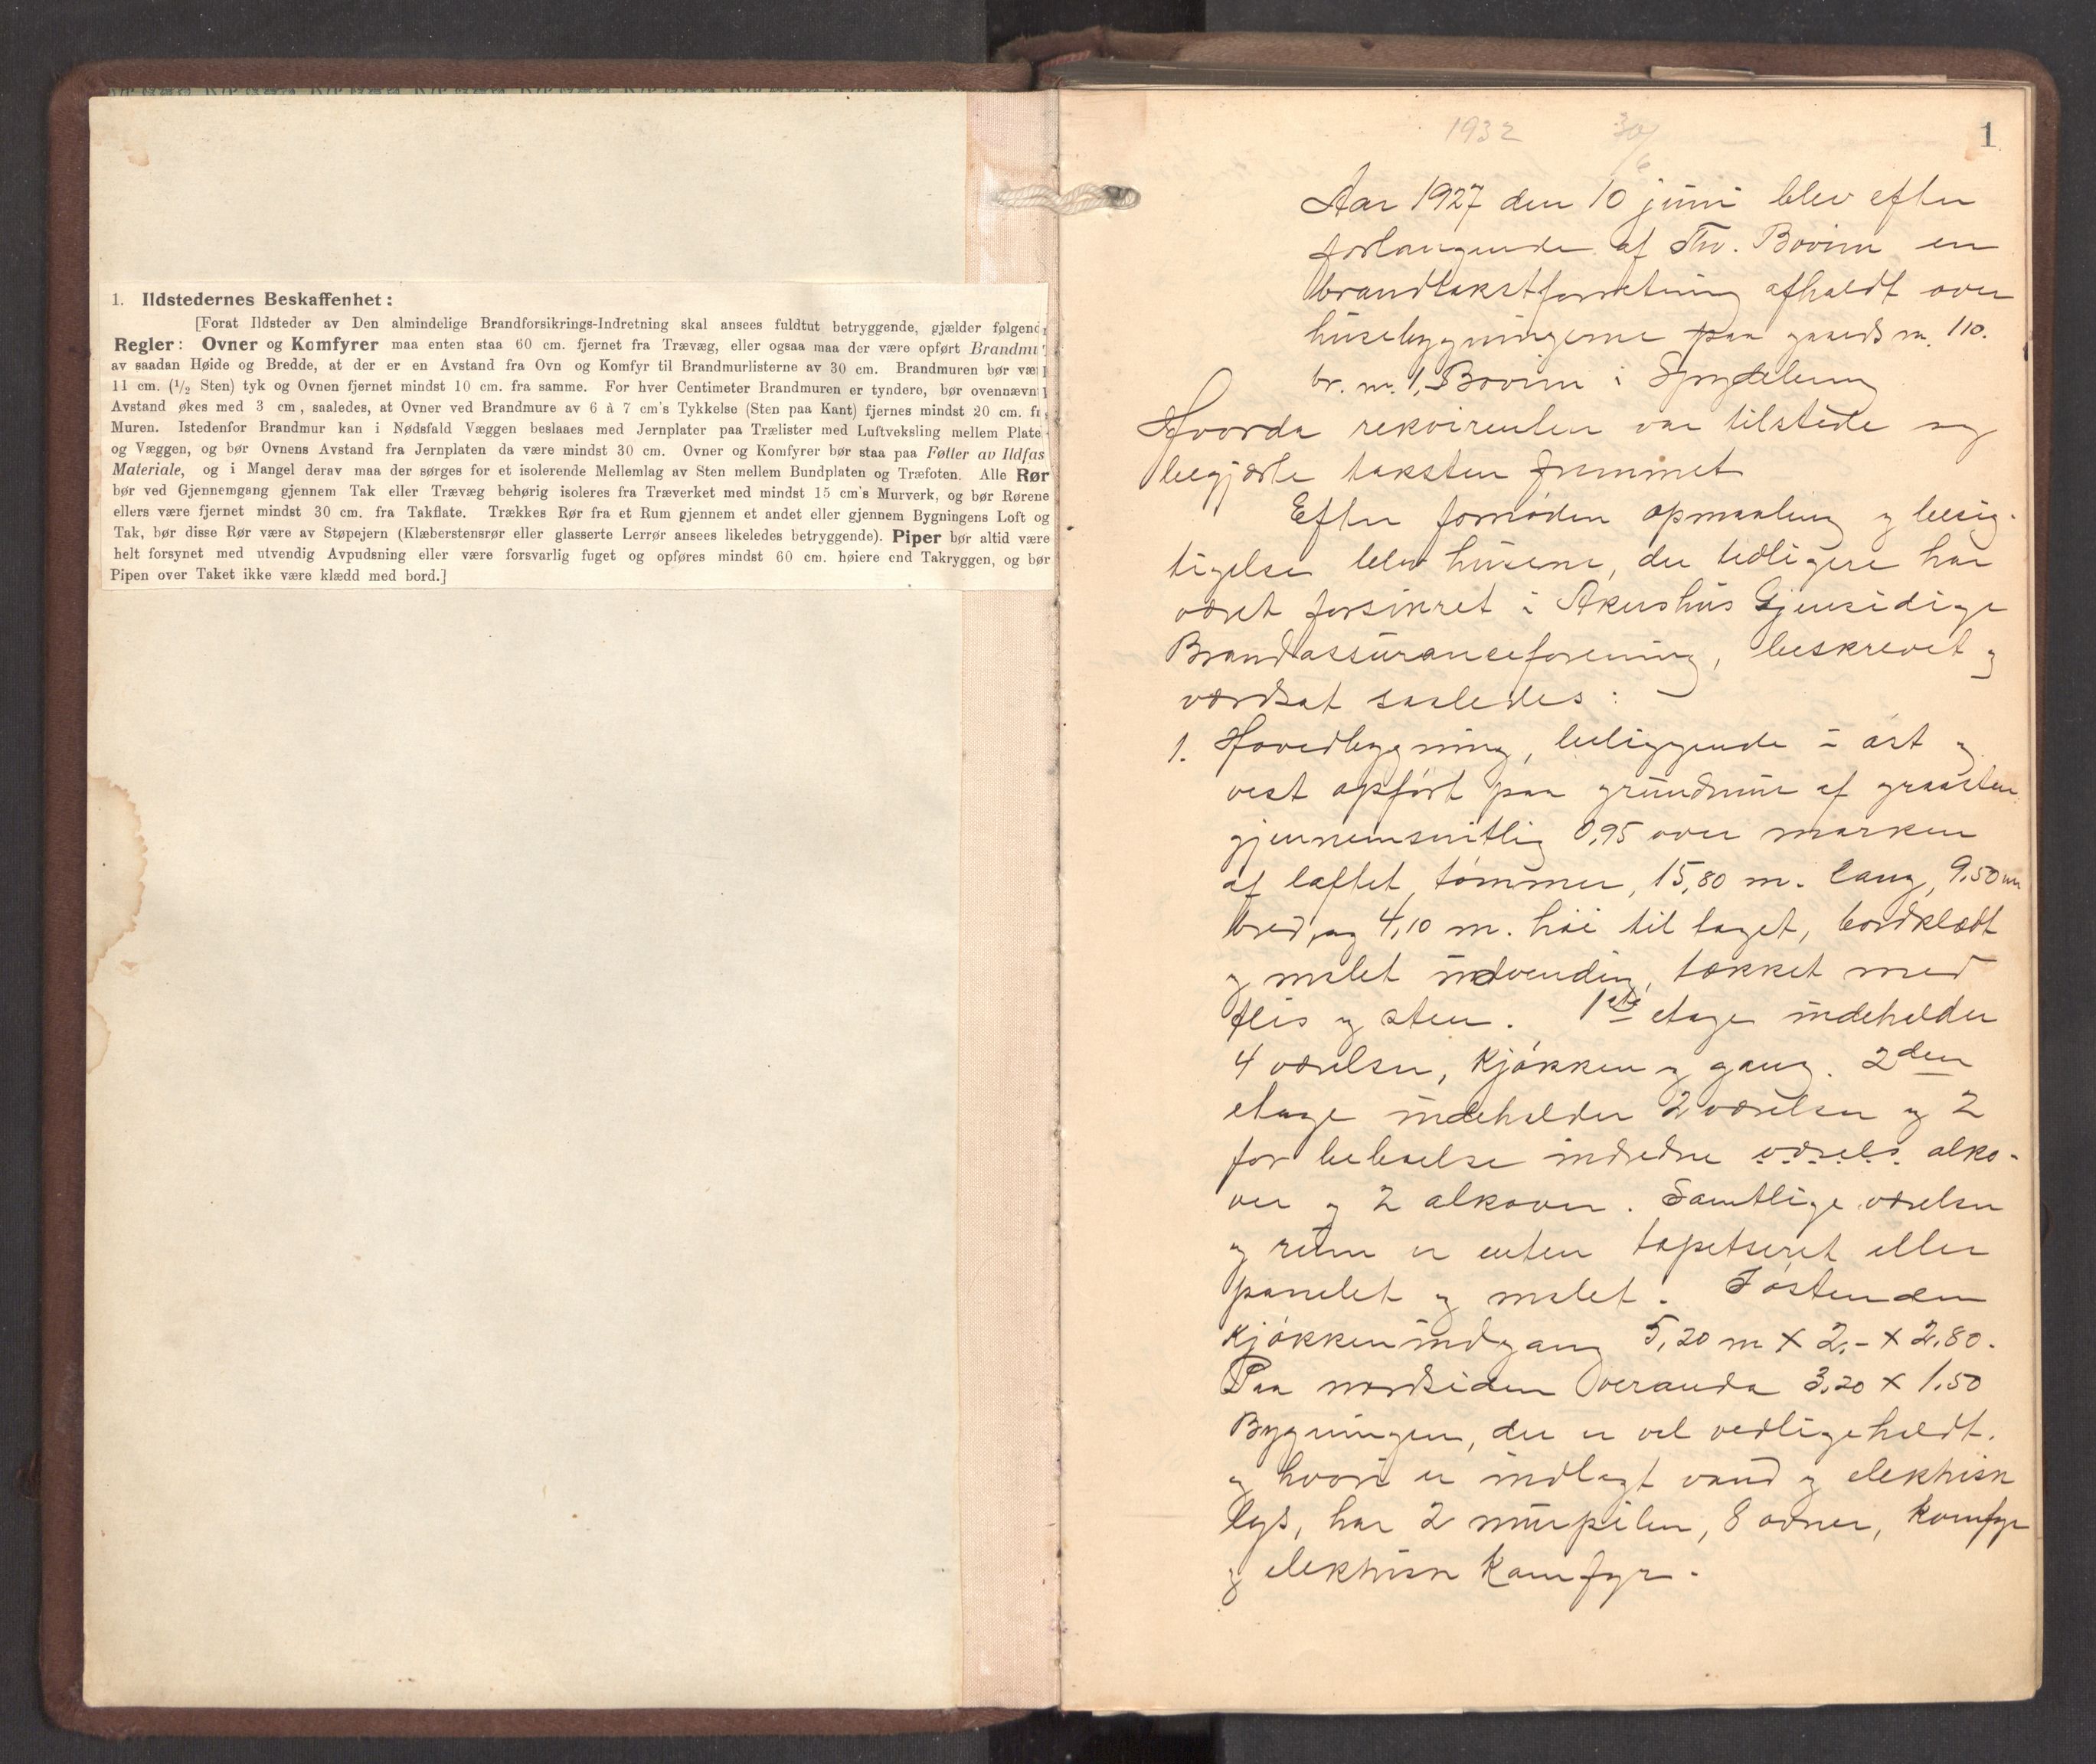 1. Ildstedernes Beskaffenhet:
[Forat Ildsteder av Den almindelige Brandforsikrings-Indretning skal ansees fuldtut betryggende, gjælder følgend
Regler: Ovner og Komfyrer maa enten staa 60 cm. fjernet fra Trævæg, eller ogsaa maa der være opført Brandmu
av saadan Høide og Bredde, at der er en Avstand fra Ovn og Komfyr til Brandmurlisterne av 30 cm. Brandmuren bør vær
11 cm. (1/2 Sten) tyk og Ovnen fjernet mindst 10 cm. fra samme. For hver Centimeter Brandmuren er tyndere, bør ovennævn
Avstand økes med 3 cm, saaledes, at Ovner ved Brandmure av 6 à 7 cm's Tykkelse (Sten paa Kant) fjernes mindst 20 cm. fr
Muren. Istedenfor Brandmur kan i Nødsfald Væggen beslaaes med Jernplater paa Trælister med Luftveksling mellem Plate
og Væggen, og bør Ovnens Avstand fra Jernplaten da være mindst 30 cm. Ovner og Komfyrer bør staa paa Føtter av Ildfas
Materiale, og i Mangel derav maa der sørges for et isolerende Mellemlag av Sten mellem Bundplaten og Træfoten. Alle Rør
bør ved Gjennemgang gjennem Tak eller Trævæg behørig isoleres fra Træverket med mindst 15 cm's Murverk, og bør Rørene
ellers være fjernet mindst 30 cm. fra Takflate. Trækkes Rør fra et Rum gjennem et andet eller gjennem Bygningens Loft og
Tak, bør disse Rør være av Støpejern (Klæberstensrør eller glasserte Lerrør ansees likeledes betryggende). Piper bør altid være
helt forsynet med utvendig Avpudsning eller være forsvarlig fuget og opføres mindst 60 cm. høiere end Takryggen, og bør
Pipen over Taket ikke være klædd med bord.]
1932 30/6
1
Aar 1927 den 10 juni blev efter
forlangende af Thv. Bovim en
brandtakstforretning afholdt over
husebygningerne paa gaards nr. 110.
br. nr. 1, Bovim i
Hvorda rekvirenten var tilstede og
begjærte taksten fremmet
Efter fornøden opmaaling og besig-
tigelse blev husene, der tidligere har
været forsikret i Akershus Gjensidige
Brandassuranceforening, beskrevet og
værdsat saaledes:
1. Hovedbygning, beliggende i øst og
vest opført paa grundmur af graasten
gjennemsnitlig 0,95 over marken
af laftet tømmer, 15,80 m. lang, 9.50 m
bred, og 4,10 m. høi til taget, bordklædt
og malet udvendig, tækket med
flis og sten. 1ste etage indeholder
4 værelser, kjøkken og gang. 2den
etage indeholder 2 værelser og 2
for beboelse indredne værels alko-
ver og 2 alkover. Samtlige værelser
og rum er enten tapetseret eller
panelet og malet. I østenden
kjøkkenindgang 5,20 m x 2.- x 2.80.
Paa nordsiden veranda 3.20 x 1.50
Bygningen, der er vel vedligeholdt.
og hvori er indlagt vand og elektrisk
lys, har 2 murpiber, 8 ovner, komfyr
og elektrisk komfyr.